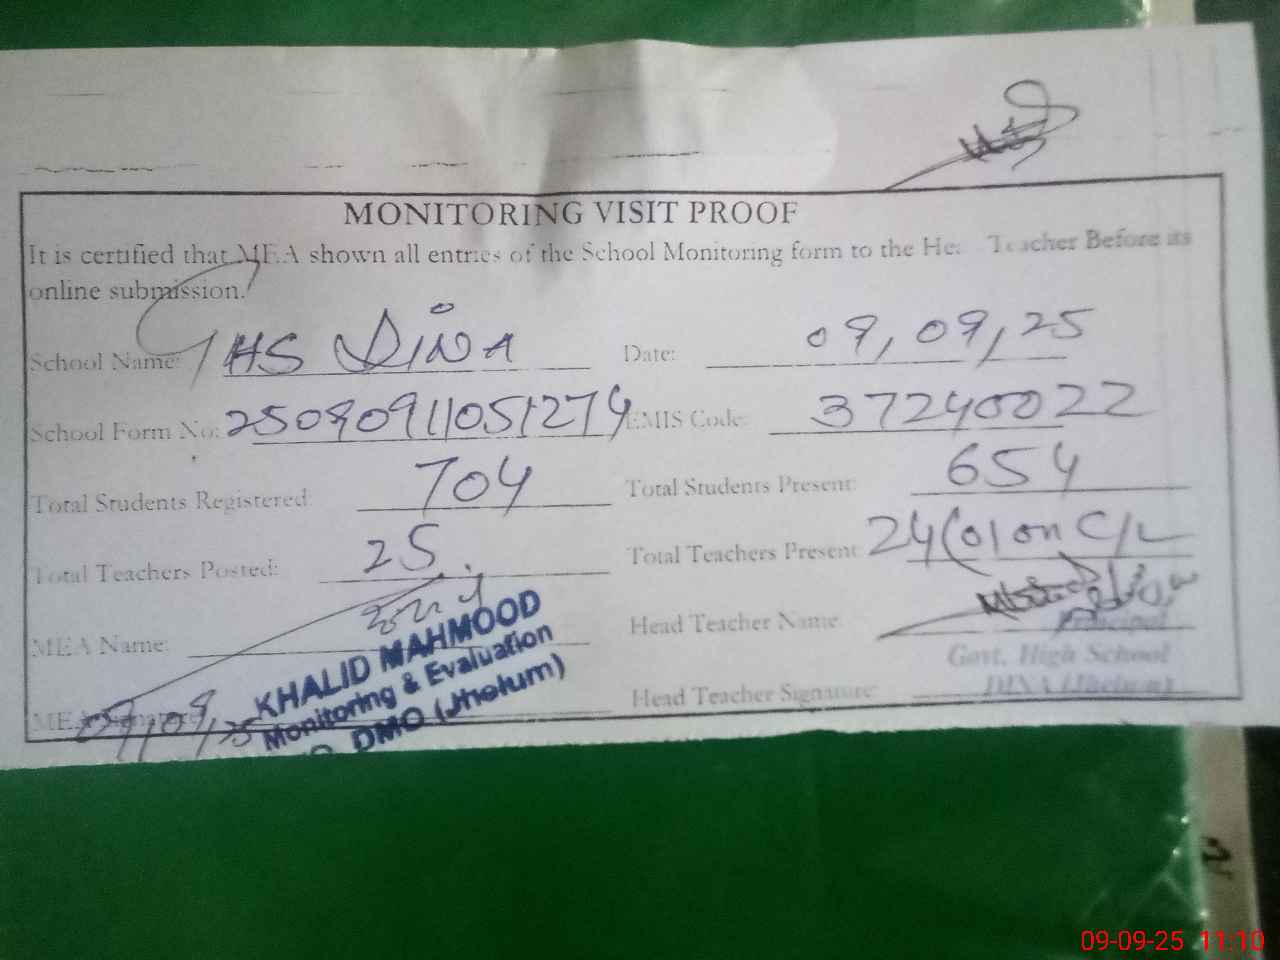 MONITORING VISIT PROOF
It is certified that MEA shown all entries of the School Monitoring form to the Head Teacher Before its
online submission.
School Name: GHS DINA Date: 09,09,25
School Form No: 25090911051274 EMIS Code: 37240022
Total Students Registered 704 Total Students Present: 654
Total Teachers Posted: 25. Total Teachers Present 24 (01 on C/L
MEA Name: Head Teacher Name
KHALID MAHMOOD
Monitoring & Evaluation
DMO (Jhelum)
Principal
Govt. High School
DINA (Jhelum)
Head Teacher Signature:
09,09,25
09-09-25 11:10